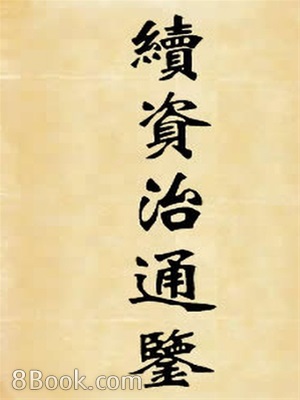 續資治通鑒
8Book.com